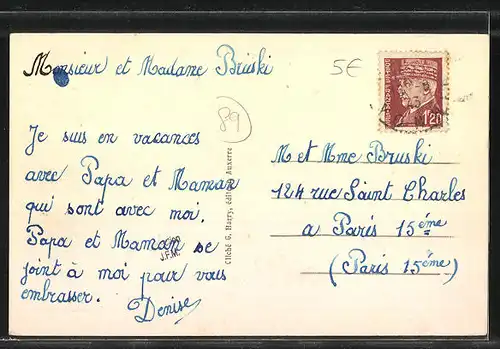 Monsieur et Madame Bruski
5€
89
Je suis en vacances
avec Papa et Maman
qui sont avec moi.
Papa et Maman se
joint à moi pour vous
embrasser.
Denise
J.F.N.
Cliché G. Haery, édit. Auxerre
1f20
M et Mme Bruski
124 rue Saint Charles
a Paris 15éme
(Paris 15éme)